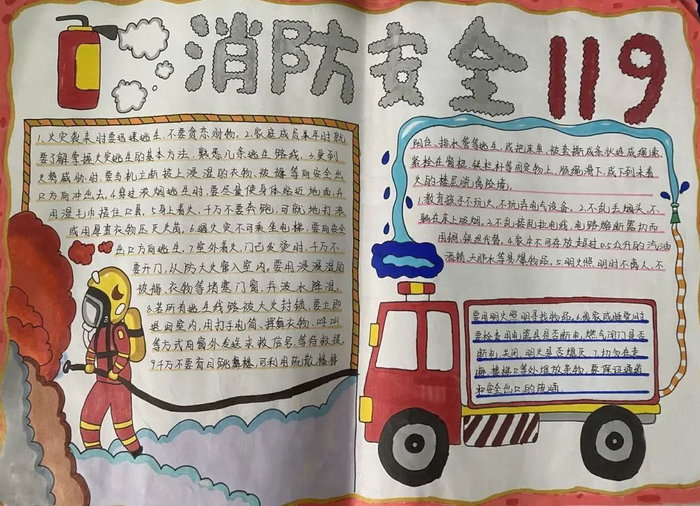 消防安全119
1.火灾袭来时要迅速逃生,不要贪恋财物。2.家庭成员平时就
要了解掌握火灾逃生的基本方法,熟悉几条逃生路线。3.受到
火势威胁时,要当机立断披上浸湿的衣物、被褥等向安全出
口方向冲出去。4.穿过浓烟逃生时,要尽量使身体贴近地面,并
用湿毛巾捂住口鼻。5.身上着火,千万不要奔跑,可就地打滚
或用厚重衣物压灭火苗。6.遇火灾不可乘坐电梯,要向安全
出口方向逃生。7.室外着火,门已发烫时,千万不
要开门,以防大火窜入室内,要用浸湿的
被褥、衣物等堵塞门窗,并泼水降温。
8.若所有逃生线路被大火封锁,要立即
退回室内,用打手电筒、挥舞衣物、呼叫
等方式向窗外发送求救信号,等待救援
9千万不要盲目跳楼,可利用疏散楼梯
阳台、排水管等逃生,或把床单、被套撕成条状连成绳索,
紧拴在窗框、铁栏杆等固定物上,顺绳滑下,或下到未着
火的楼层脱离险境。
1.教育孩子不玩火,不玩弄电气设备。2.不乱丢烟头,不
躺在床上吸烟。3.不乱接乱拉电线,电路熔断器切勿
用铜、铁丝代替。4.家中不可存放超过0.5公升的汽油
酒精、天那水等易燃物品。5.明火照明时不离人,不
要用明火照明寻找物品。6.离家或睡觉前
要检查用电器具是否断电,燃气阀门是否
断电,关闭,明火是否熄灭。7.切勿在走
廊、楼梯口等处堆放杂物,要保证通道
和安全出口的疏通。